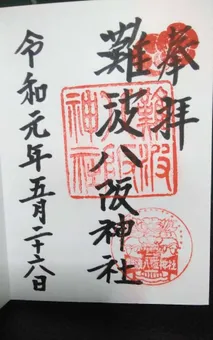 奉拝
難波八阪神社
令和元年五月二十六日
難波
神社